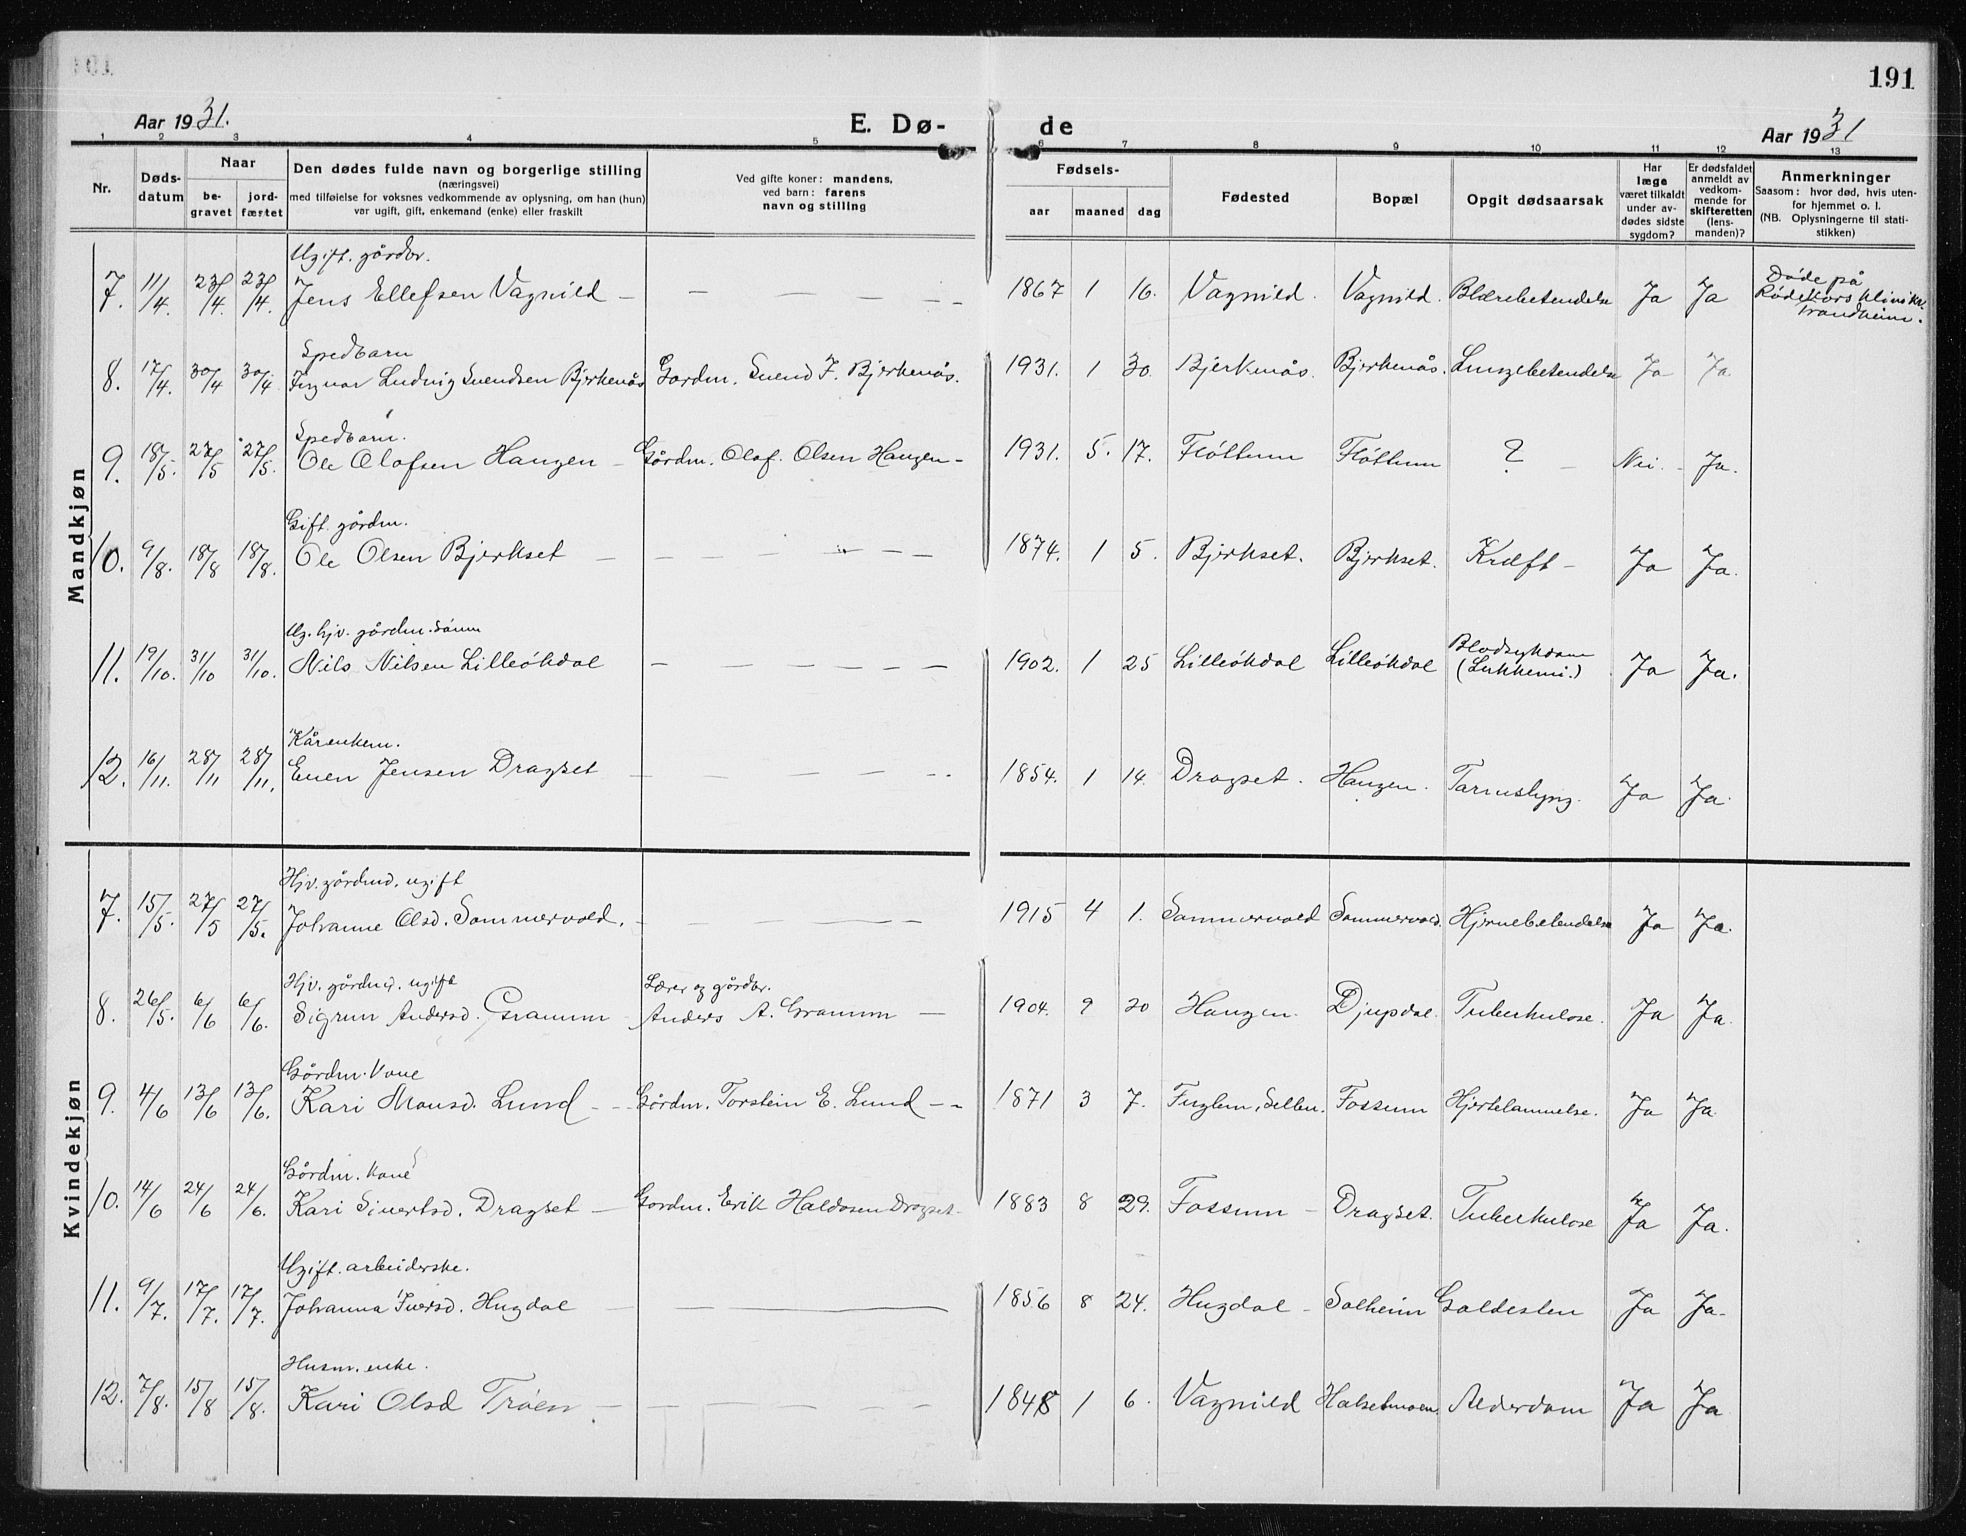 191
Aar 1931. E. Dø- de Aar 1931
1 2 3 4 5 6 7 8 9 10 11 12 13
Nr. Døds-datum Naar be-gravet jord-fæstet Den dødes fulde navn og borgerlige stilling (næringsvei) med tilføielse for voksnes vedkommende av oplysning, om han (hun) var ugift, gift, enkemand (enke) eller fraskilt Ved gifte koner: mandens, ved barn: farens navn og stilling Fødsels- aar maaned dag Fødested Bopæl Opgit dødsaarsak Har læge været tilkaldt under av-dødes sidste sygdom? Er dødsfaldet anmeldt av vedkom-mende for skifteretten (lens-manden)? Anmerkninger Saasom: hvor død, hvis uten-for hjemmet o. l. (NB. Oplysningerne til stati-stikken)
Mandkjøn
Ugift. gårdbr.
7. 11/4. 23/4. 23/4. Jens Ellefsen Vagnild — — — — — 1867 1 16. Vagnild. Vagnild. Blærebetendelse Ja Ja Døde på Rødekors klinikk Trondheim.
Spedbarn
8. 17/4. 30/4 30/4. Ingvar Ludvig Svendsen Bjerkenås Gardm. Svend J. Bjerkenås. 1931. 1 30. Bjerkenås. Bjerkenås. Lungebetendelse Ja Ja
Spedbarn.
9. 18/5. 27/5 27/5. Ole Olafsen Haugen — Gårdm. Olaf Olsen Haugen — 1931. 5. 17. Fløttum Fløttum ? — Nei. - Ja.
Gift gårdm.
10. 9/8. 18/8 18/8. Ole Olsen Bjerkset — — — — — 1874. 1 5. Bjerkset. Bjerkset. Kræft — Ja Ja.
Ug. hjv. gårdm. sønn
11. 19/10. 31/10 31/10. Nils Nilsen Lilleøkdal — — — — — 1902. 1 25 Lilleøkdal Lilleøkdal Blodsykdom (Lukkemi.) Ja Ja.
Kårenkem.
12. 16/11. 28/11 28/11. Even Jensen Dragset — — — — 1854. 1 14. Dragset. Haugen. Tarmslyng. Ja Ja.
Kvindekjøn
Hjv. gårdmd. ugift
7. 15/5. 27/5 27/5. Johanne Olsd. Sommervold. — — — — 1915 4 1. Sommervold Sommervold. Hjernebetendelse Ja Ja.
Hjv. gårdmd. ugift Lærer og gårdbr.
8. 26/5. 6/6 6/6. Sigrun Andersd. Gramm - Anders A. Gramm — 1904. 9 20 Haugen. Djupdal. Tuberkulose. Ja Ja.
Gårdm. kone
9. 4/6 13/6 13/6. Kari Monsd. Lund — - Gårdm. Torstein E. Lund - - 1871 3 7. Fuglem, Selbu. Fossum Hjertelammelse. Ja Ja.
Gårdm. kone
10. 14/6 24/6 24/6. Kari Sivertsd. Dragset — Gardm. Erik Haldosen Dragset - 1883 8 29. Fossum - Dragset. Tuberkulose Ja Ja.
Ugift. arbeiderske.
11. 9/7. 17/7. 17/7. Johanna Iversd. Hugdal — — 1856 8 24. Hugdal - Solheim Galdesten Ja Ja-
Husm. enke.
12. 7/8. 15/8 15/8. Kari Olsd Trøen — — — — 1848 1 6. Vagnild Halsetmoen. Alderdom Ja Ja